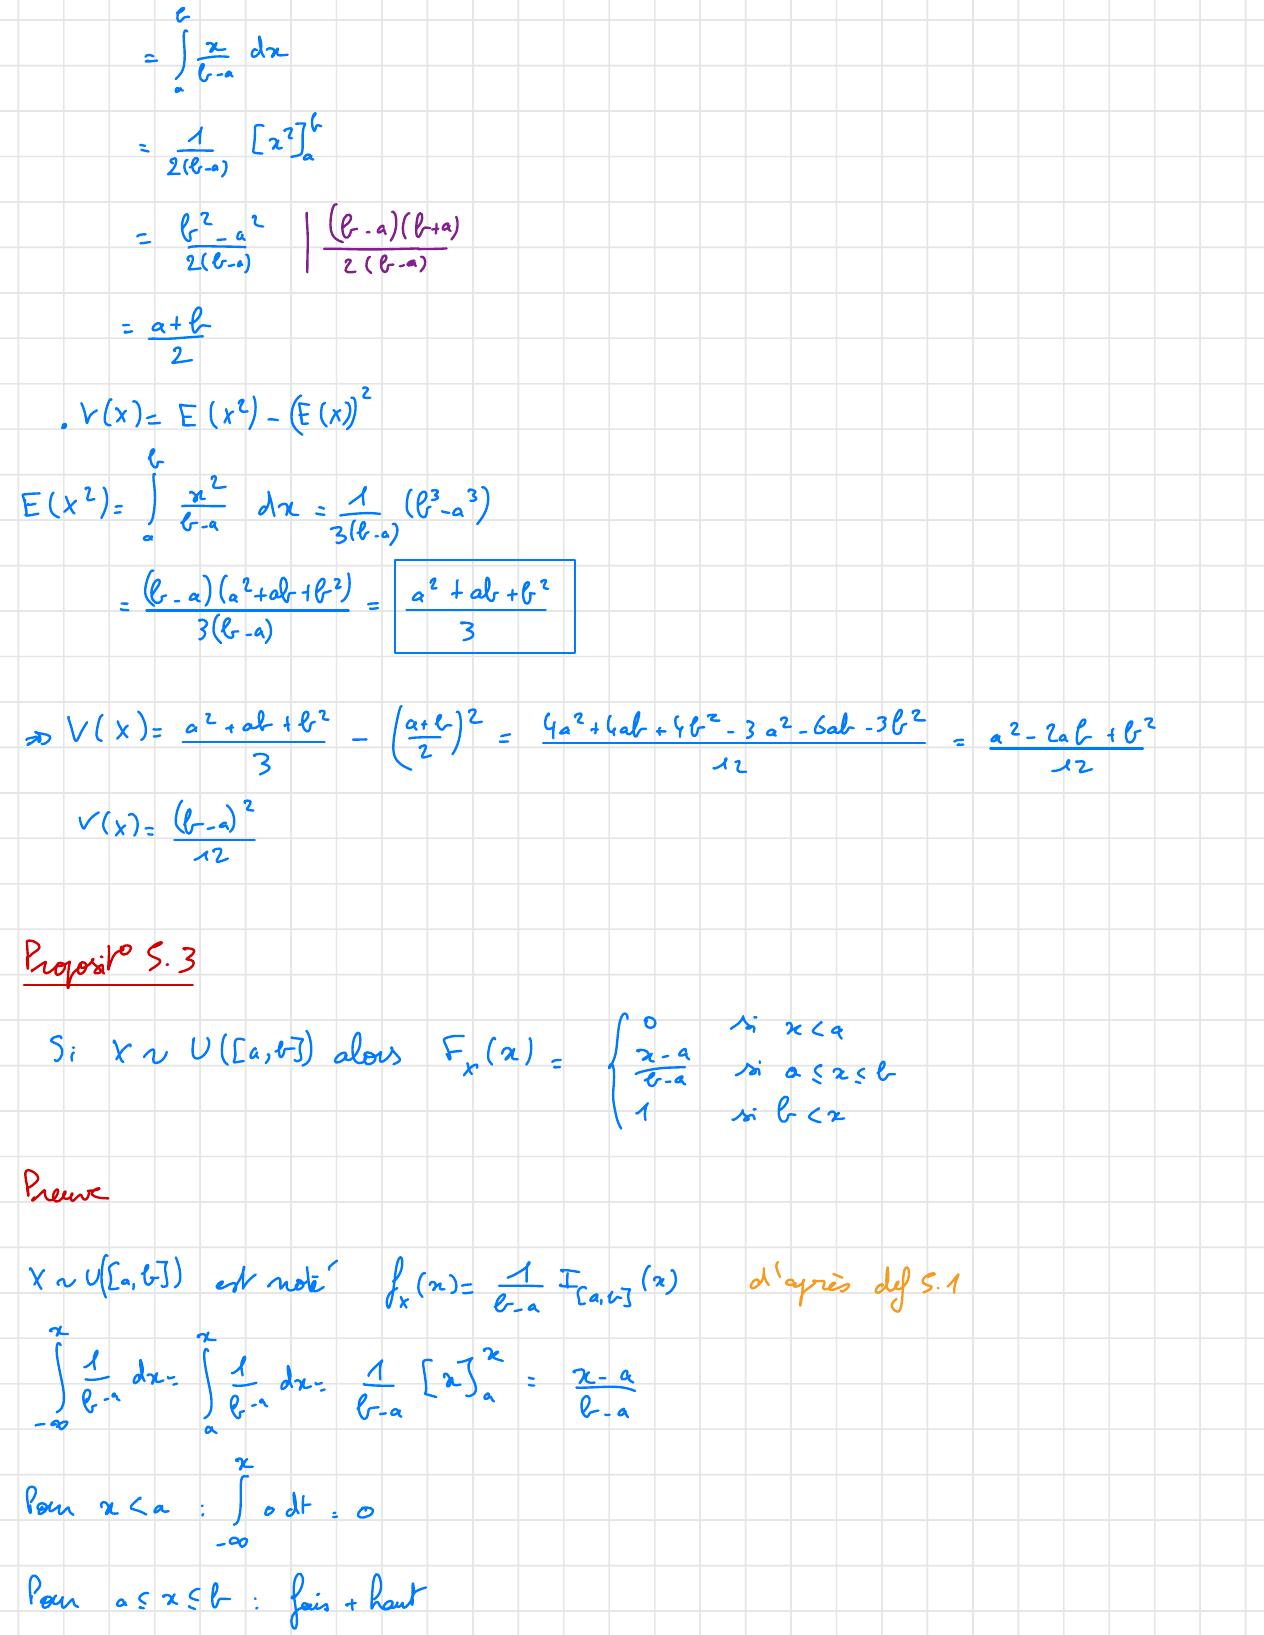 = ∫_a^b x/(b-a) dx
= 1/(2(b-a)) [x²]_a^b
= (b² - a²)/(2(b-a)) | ((b-a)(b+a))/(2(b-a))
= (a+b)/2
. V(X) = E(X²) - (E(X))²
E(X²) = ∫_a^b x²/(b-a) dx = 1/(3(b-a)) (b³-a³)
= ((b-a)(a²+ab+b²))/(3(b-a)) = (a²+ab+b²)/3
⇒ V(X) = (a²+ab+b²)/3 - ((a+b)/2)² = (4a²+4ab+4b²-3a²-6ab-3b²)/12 = (a²-2ab+b²)/12
V(X) = (b-a)²/12
Proposit° 5.3
Si X ~ U([a,b]) alors F_X(x) = { 0 si x < a
(x-a)/(b-a) si a ≤ x ≤ b
1 si b < x
Preuve
X ~ U([a,b]) est noté f_X(x) = 1/(b-a) I_[a,b](x) d'après def 5.1
∫_{-∞}^x 1/(b-a) dx = ∫_a^x 1/(b-a) dx = 1/(b-a) [x]_a^x = (x-a)/(b-a)
Pour x < a : ∫_{-∞}^x 0 dt = 0
Pour a ≤ x ≤ b : fais + haut